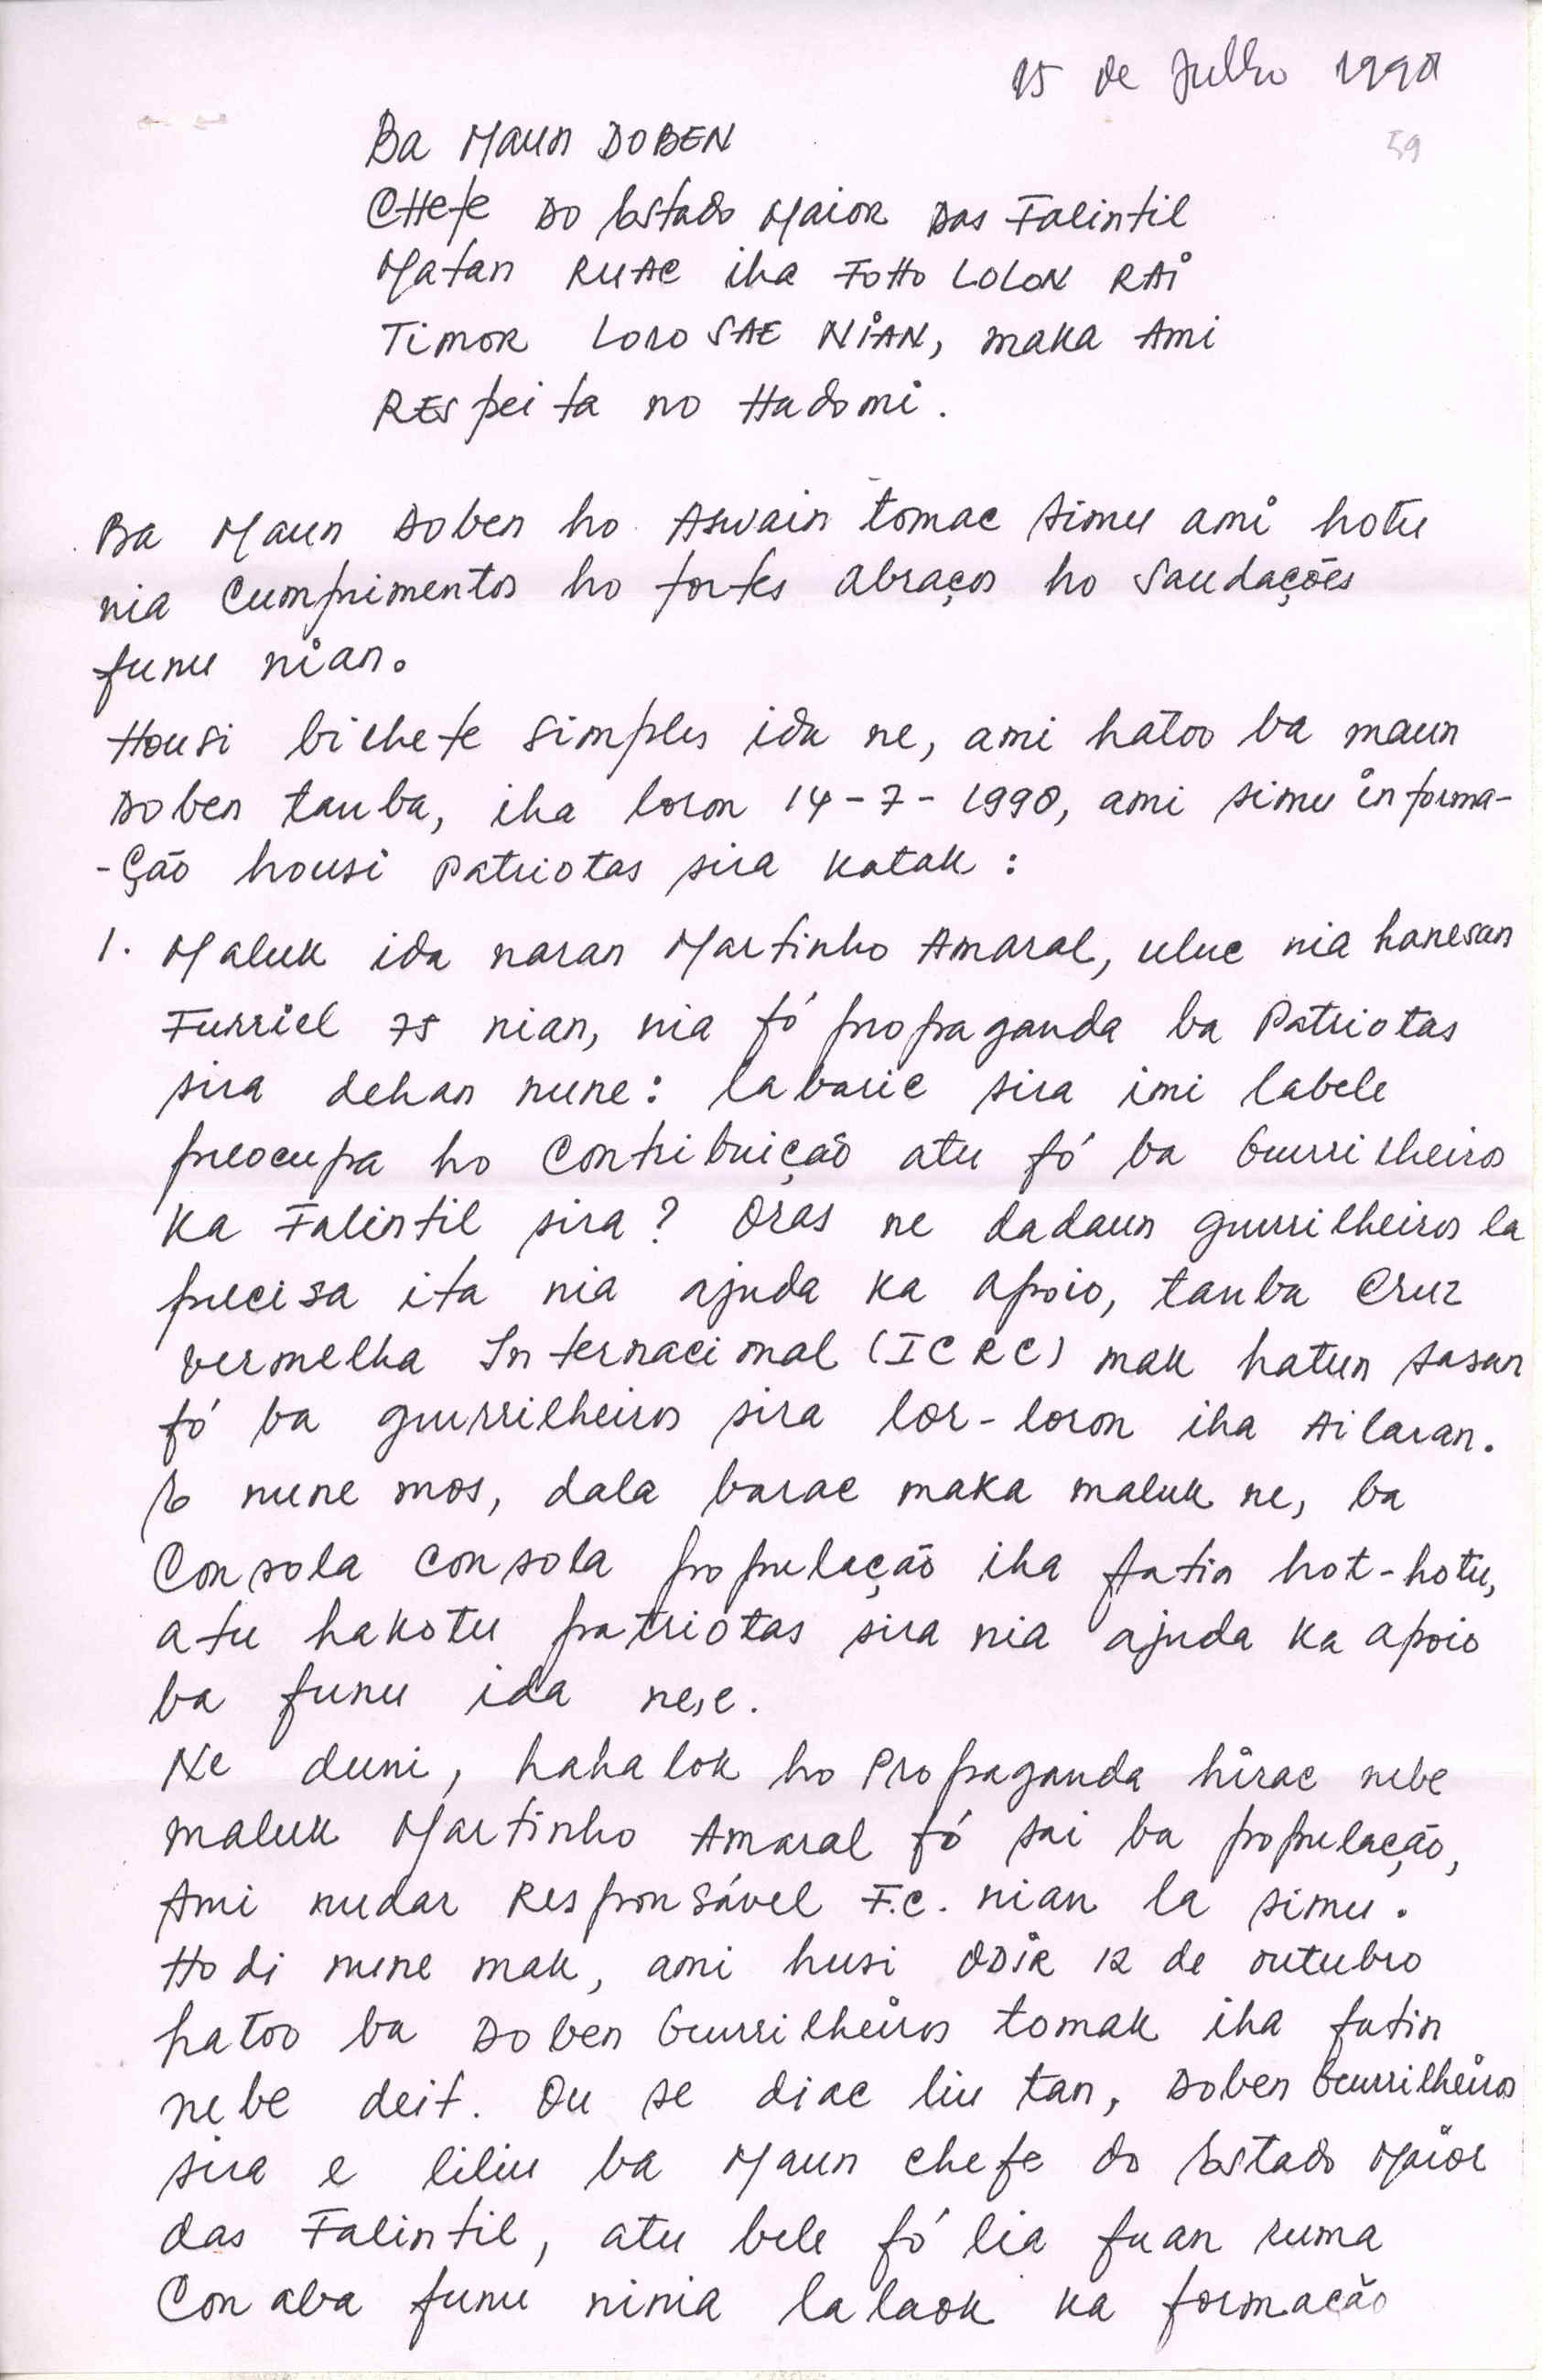 15 de Julho 1998
59
Ba Maun DOBEN
CHefe DO Estado Maior Das Falintil
Matan RUAC iha FOHO LOLON RAI
TimoR Loro SAE NIAN, maka Ami
REspeita no Hadomi.
Ba Maun Doben ho Aswain tomac simu ami hotu
nia Cumprimentos ho fortes abraços ho Saudações
funu nian.
Housi bilhete simples ida ne, ami hatoo ba maun
Doben tauba, iha loron 14-7-1998, ami simu informa-
-ção housi Patriotas sira katak:
1. Maluk ida naran Martinho Amaral, uluc nia hanesan
Furriel 75 nian, nia fó propaganda ba Patriotas
sira dehan nune: labaric sira imi labele
preocupa ho Contribuição atu fó ba Guerrilheiros
Ka Falintil sira? Oras ne dadaun guerrilheiros la
precisa ita nia ajuda ka apoio, tauba Cruz
vermelha Internacional (ICRC) mak hatun sasan
fó ba guerrilheiros sira lor-loron iha Ailaran.
E nune mos, dala barac maka maluk ne, ba
Consola consola população iha fatin hot-hotu,
atu hakotu patriotas sira nia ajuda ka apoio
ba funu ida ne,e.
Ne duni, hahalok ho Propaganda hirac nebe
maluk Martinho Amaral fó sai ba população,
Ami nudar Responsável F.C. nian la simu.
Hodi nune mak, ami husi ODIR 12 de outubro
hatoo ba Doben Guerrilheiros tomak iha fatin
nebe deit. Ou se diac liu tan, Doben Guerrilheiros
sira e liliu ba Maun chefe do Estado Maior
das Falintil, atu bele fó lia fuan ruma
Conaba funu ninia lalaok ka formação